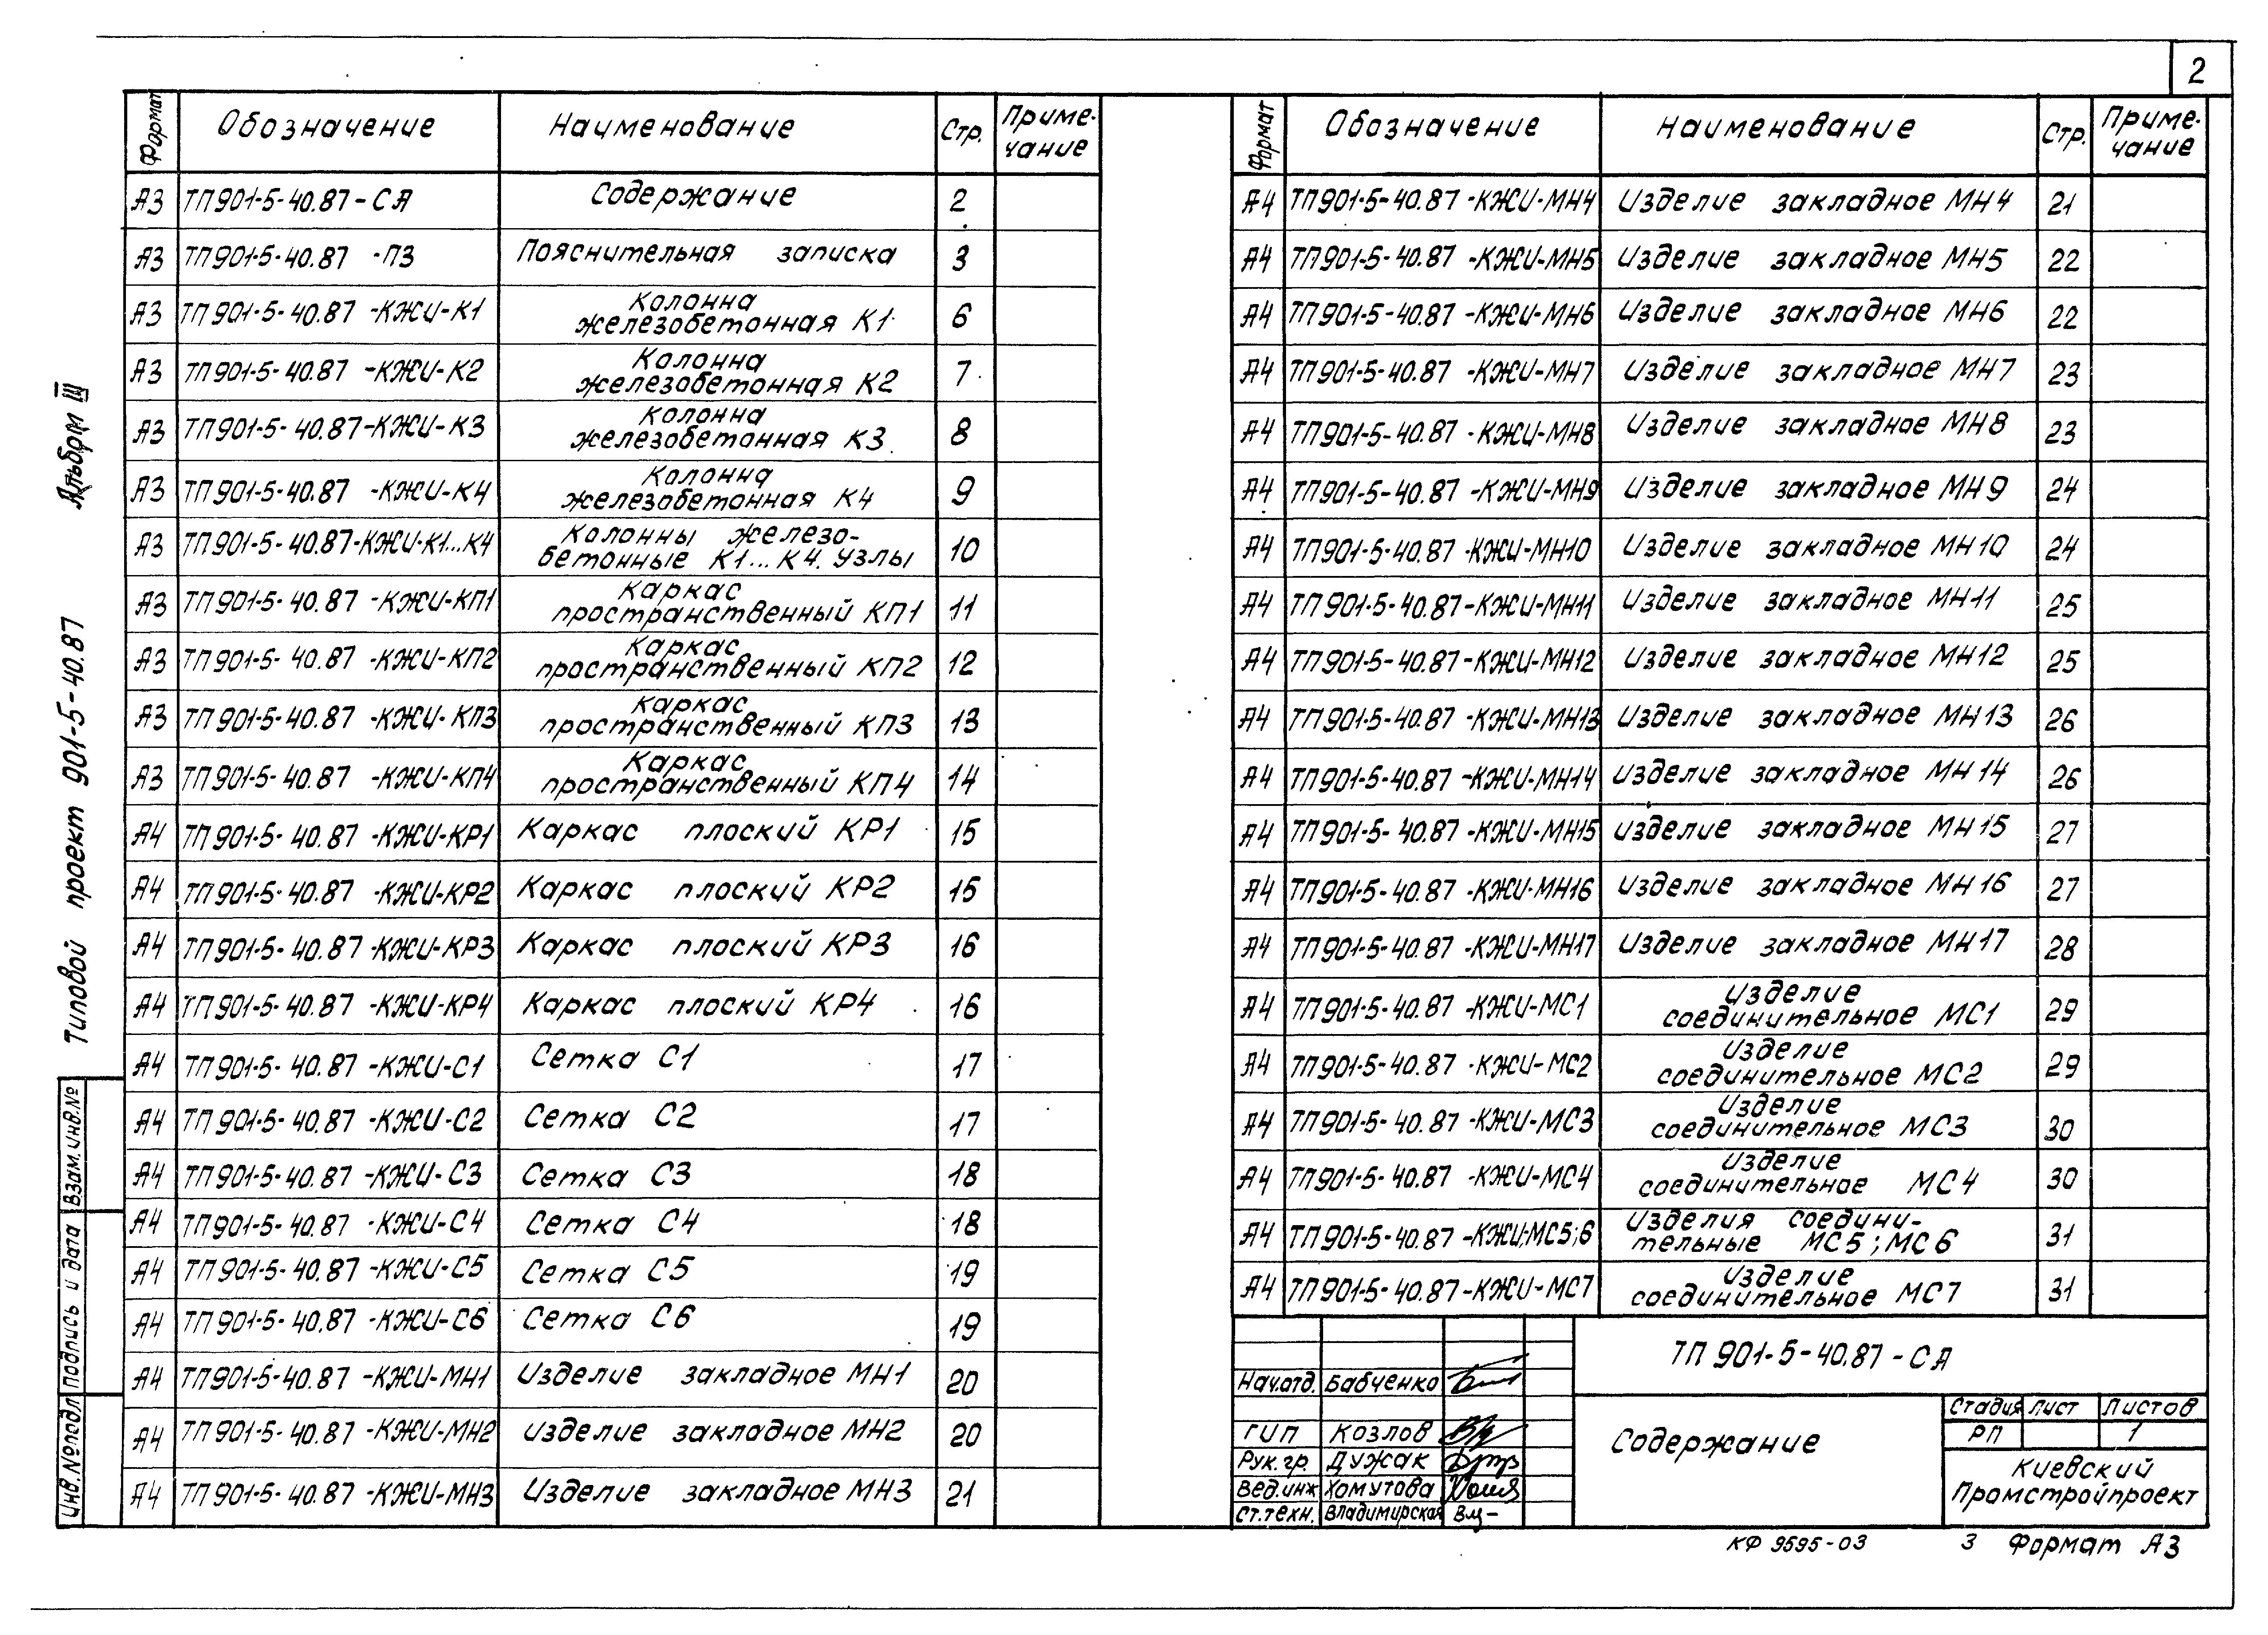 2
Формат Обозначение Наименование Стр. Приме-
чание
А3 ТП901-5-40.87-СА Содержание 2
А3 ТП901-5-40.87 -ПЗ Пояснительная записка 3
А3 ТП901-5-40.87 -КЖИ-К1 Колонна
железобетонная К1 6
А3 ТП901-5-40.87 -КЖИ-К2 Колонна
железобетонная К2 7
А3 ТП901-5-40.87-КЖИ-К3 Колонна
железобетонная К3 8
А3 ТП901-5-40.87 -КЖИ-К4 Колонна
железобетонная К4 9
А3 ТП901-5-40.87-КЖИ-К1...К4 Колонны железо-
бетонные К1...К4. Узлы 10
А3 ТП901-5-40.87 -КЖИ-КП1 Каркас
пространственный КП1 11
А3 ТП901-5-40.87 -КЖИ-КП2 Каркас
пространственный КП2 12
А3 ТП901-5-40.87 -КЖИ-КП3 Каркас
пространственный КП3 13
А3 ТП901-5-40.87 -КЖИ-КП4 Каркас
пространственный КП4 14
А4 ТП901-5-40.87 -КЖИ-КР1 Каркас плоский КР1 15
А4 ТП901-5-40.87 -КЖИ-КР2 Каркас плоский КР2 15
А4 ТП901-5-40.87 -КЖИ-КР3 Каркас плоский КР3 16
А4 ТП901-5-40.87 -КЖИ-КР4 Каркас плоский КР4 16
А4 ТП901-5-40.87 -КЖИ-С1 Сетка С1 17
А4 ТП901-5-40.87 -КЖИ-С2 Сетка С2 17
А4 ТП901-5-40.87 -КЖИ-С3 Сетка С3 18
А4 ТП901-5-40.87 -КЖИ-С4 Сетка С4 18
А4 ТП901-5-40.87 -КЖИ-С5 Сетка С5 19
А4 ТП901-5-40.87 -КЖИ-С6 Сетка С6 19
А4 ТП901-5-40.87 -КЖИ-МН1 Изделие закладное МН1 20
А4 ТП901-5-40.87 -КЖИ-МН2 Изделие закладное МН2 20
А4 ТП901-5-40.87 -КЖИ-МН3 Изделие закладное МН3 21
Формат Обозначение Наименование Стр. Приме-
чание
А4 ТП901-5-40.87 -КЖИ-МН4 Изделие закладное МН4 21
А4 ТП901-5-40.87 -КЖИ-МН5 Изделие закладное МН5 22
А4 ТП901-5-40.87 -КЖИ-МН6 Изделие закладное МН6 22
А4 ТП901-5-40.87 -КЖИ-МН7 Изделие закладное МН7 23
А4 ТП901-5-40.87 -КЖИ-МН8 Изделие закладное МН8 23
А4 ТП901-5-40.87 -КЖИ-МН9 Изделие закладное МН9 24
А4 ТП901-5-40.87 -КЖИ-МН10 Изделие закладное МН10 24
А4 ТП901-5-40.87-КЖИ-МН11 Изделие закладное МН11 25
А4 ТП901-5-40.87-КЖИ-МН12 Изделие закладное МН12 25
А4 ТП901-5-40.87 -КЖИ-МН13 Изделие закладное МН13 26
А4 ТП901-5-40.87 -КЖИ-МН14 Изделие закладное МН14 26
А4 ТП901-5-40.87 -КЖИ-МН15 Изделие закладное МН15 27
А4 ТП901-5-40.87 -КЖИ-МН16 Изделие закладное МН16 27
А4 ТП901-5-40.87 -КЖИ-МН17 Изделие закладное МН17 28
А4 ТП901-5-40.87 -КЖИ-МС1 Изделие
соединительное МС1 29
А4 ТП901-5-40.87 -КЖИ-МС2 Изделие
соединительное МС2 29
А4 ТП901-5-40.87 -КЖИ-МС3 Изделие
соединительное МС3 30
А4 ТП901-5-40.87 -КЖИ-МС4 Изделие
соединительное МС4 30
А4 ТП901-5-40.87 -КЖИ-МС5;6 Изделия соедини-
тельные МС5;МС6 31
А4 ТП901-5-40.87-КЖИ-МС7 Изделие
соединительное МС7 31
ТП 901-5-40.87-СА
Нач.отд. Бабченко
ГИП Козлов
Рук.гр. Дужак
Вед.инж Хомутова
Ст.техн. Владимирская
Содержание
Стадия Лист Листов
РП 1
Киевский
Промстройпроект
КФ 9595-03 3 Формат А3
Альбом III
Типовой проект 901-5-40.87
Взам.инв.№
Подпись и дата
Инв.№подл